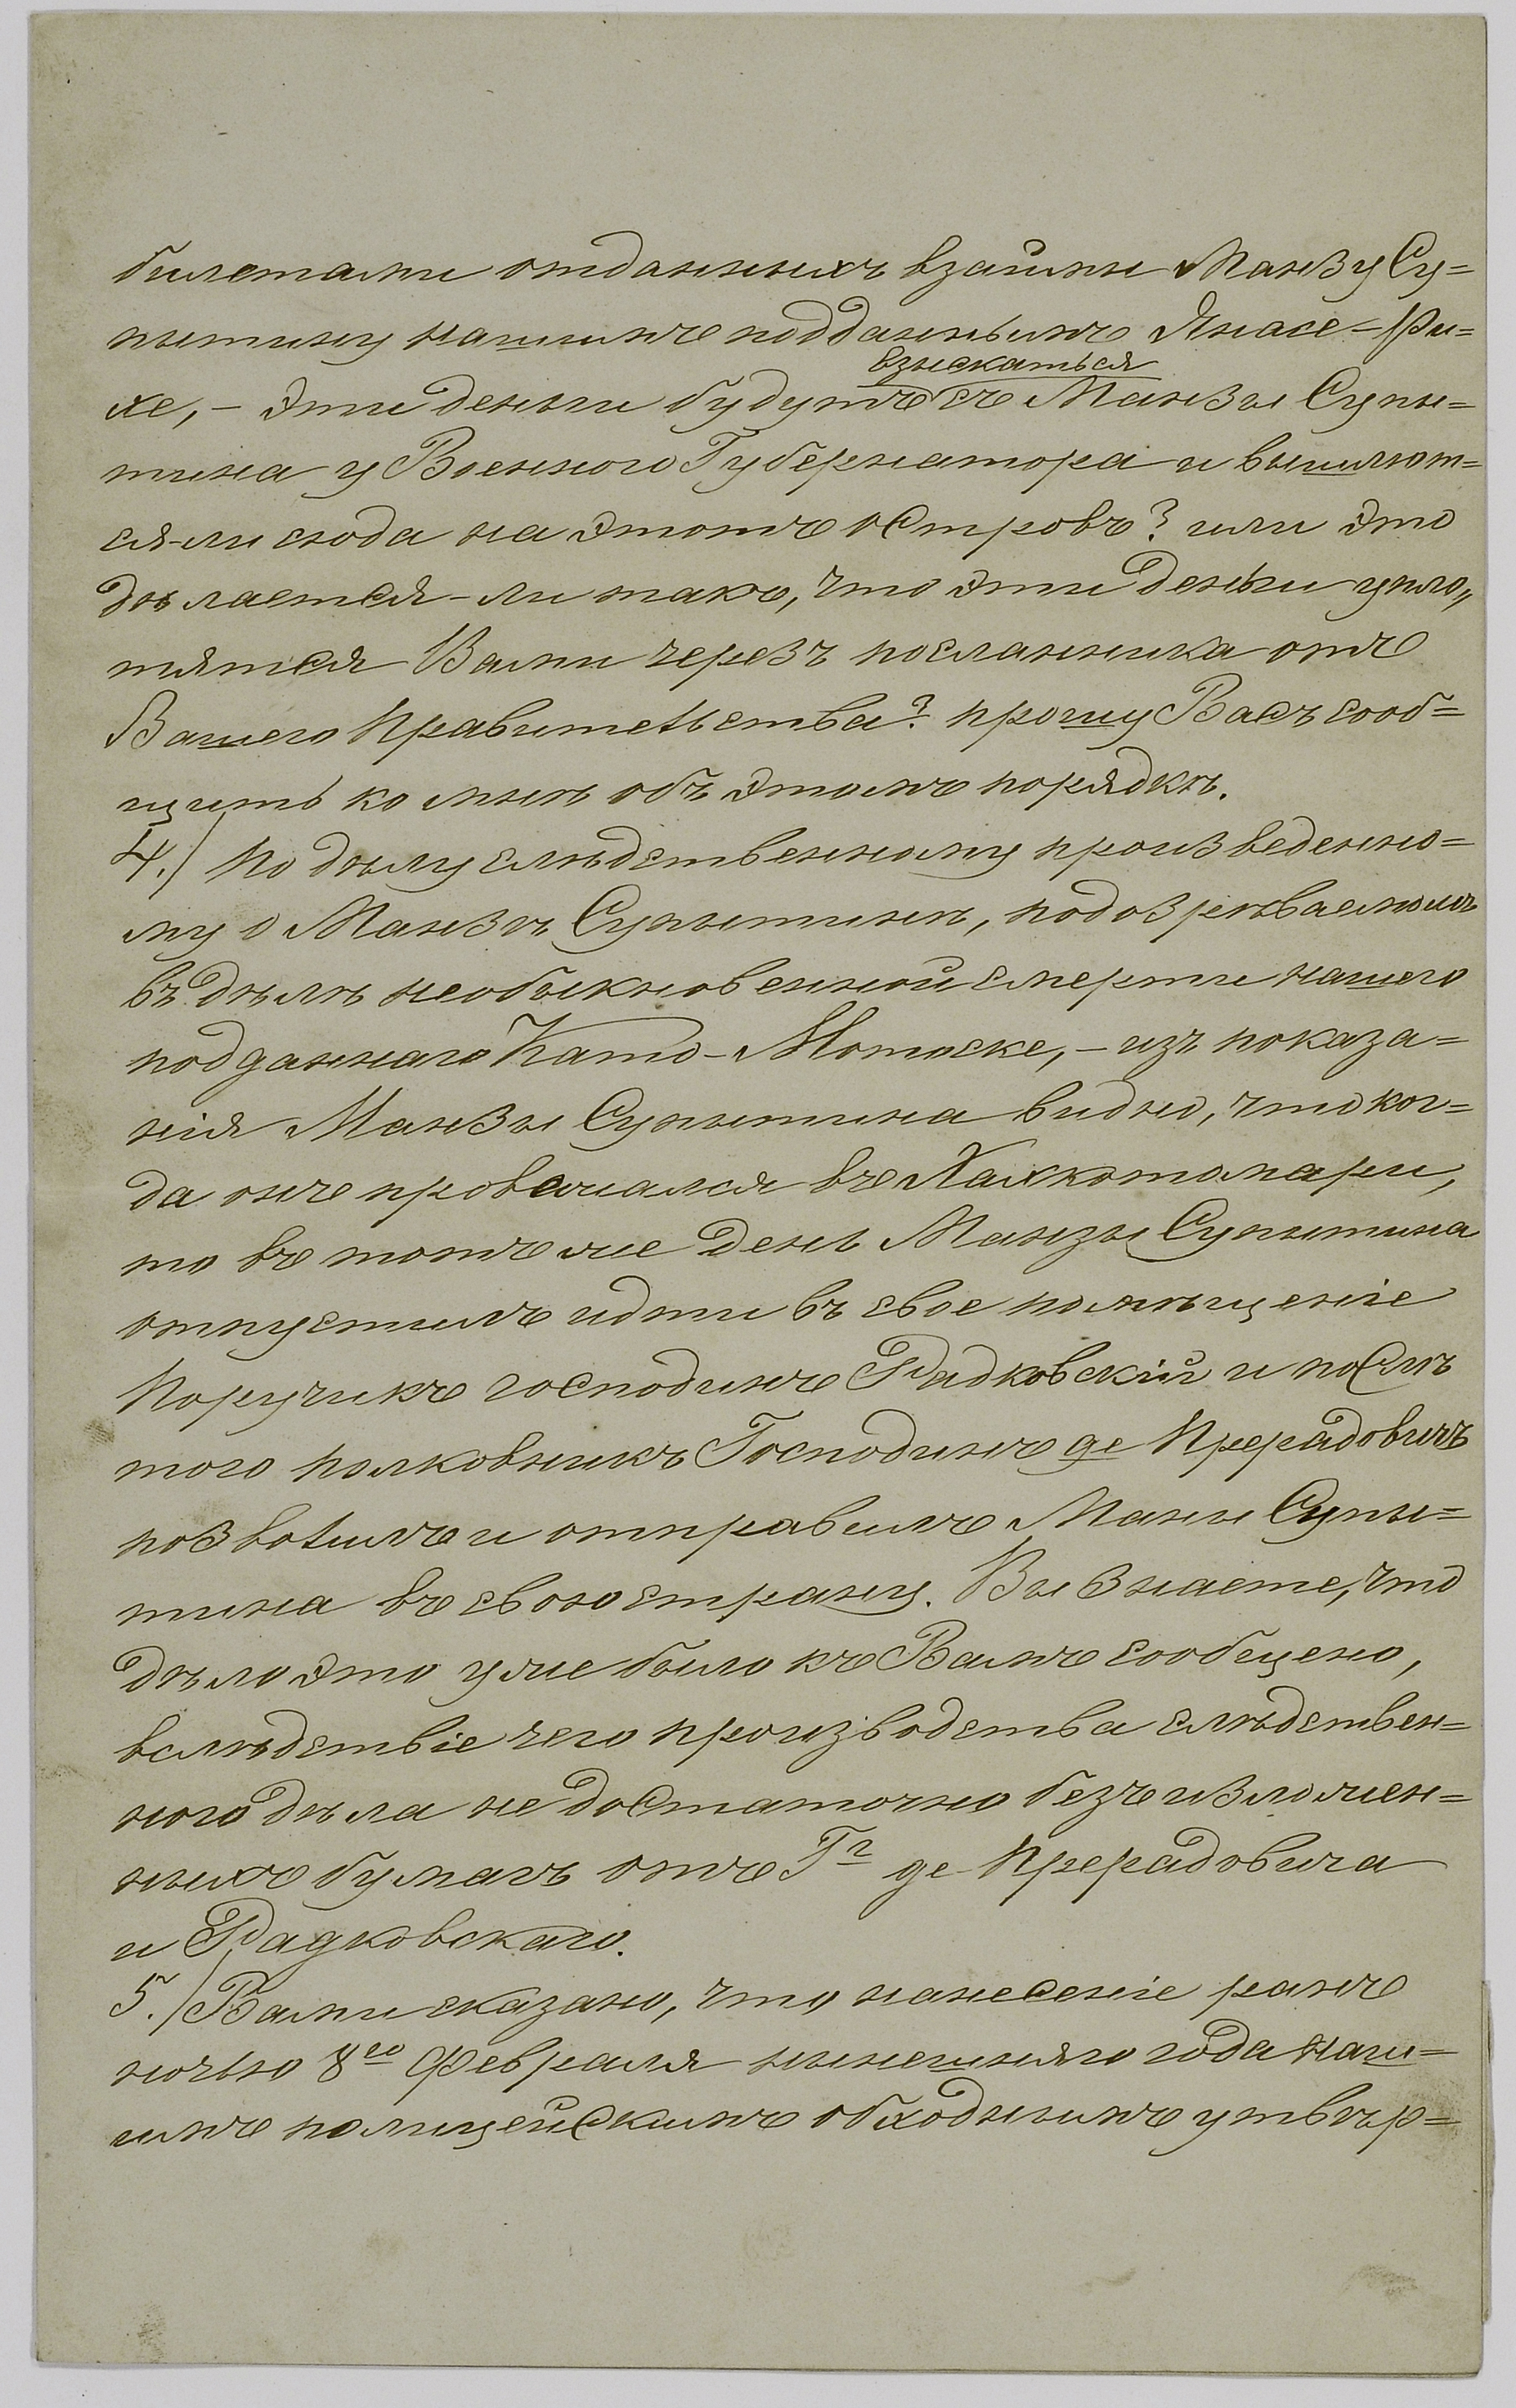 билетами отданныхъ взаймы Манзу Су=
пытину нашимъ подданнымъ Янасе-Ри=
хе, – эти деньги будутъ взыскаться съ Манзы Супы=
тина у Военного Губернатора и вышлют=
ся-ли сюда на этотъ островъ? или это
дѣлается-ли такъ, что эти деньги упло„
тятся Вами черезъ посланника отъ
Вашего Правительства? прошу Васъ сооб=
щить ко мнѣ объ этомъ порядкѣ.
4.) По дѣлу слѣдственному произведенно=
му о Манзѣ Супытинѣ, подозрѣваемомъ
въ дѣлѣ необыкновенной смерти нашего
подданнаго Като-Мотоске, – изъ показа=
нія Манзы Супытина видно, что ког=
да онъ провачался въ Хаккотомари,
то въ тотъ же день Манзы Супытина
отпустилъ идти въ свое помѣщеніе
Поручикъ господинъ Радковскій и послѣ
того полковникъ Господинъ де Прерадовичъ
позволилъ и отправилъ Маны Супы=
тина въ свою страну. Вы знаете, что
дѣло это уже было къ Вамъ сообщено,
вслѣдствіе чего производства слѣдствен=
ного дѣла не достаточно безъ изложен=
ныхъ бумагъ отъ Гг де-Прерадовича
и Радковскаго.
5.) Вами сказано, что нанесеніе ранъ
ночью 8го Февраля нынешняго года наш=
имъ полицейскимъ обходнымъ утвѣр=